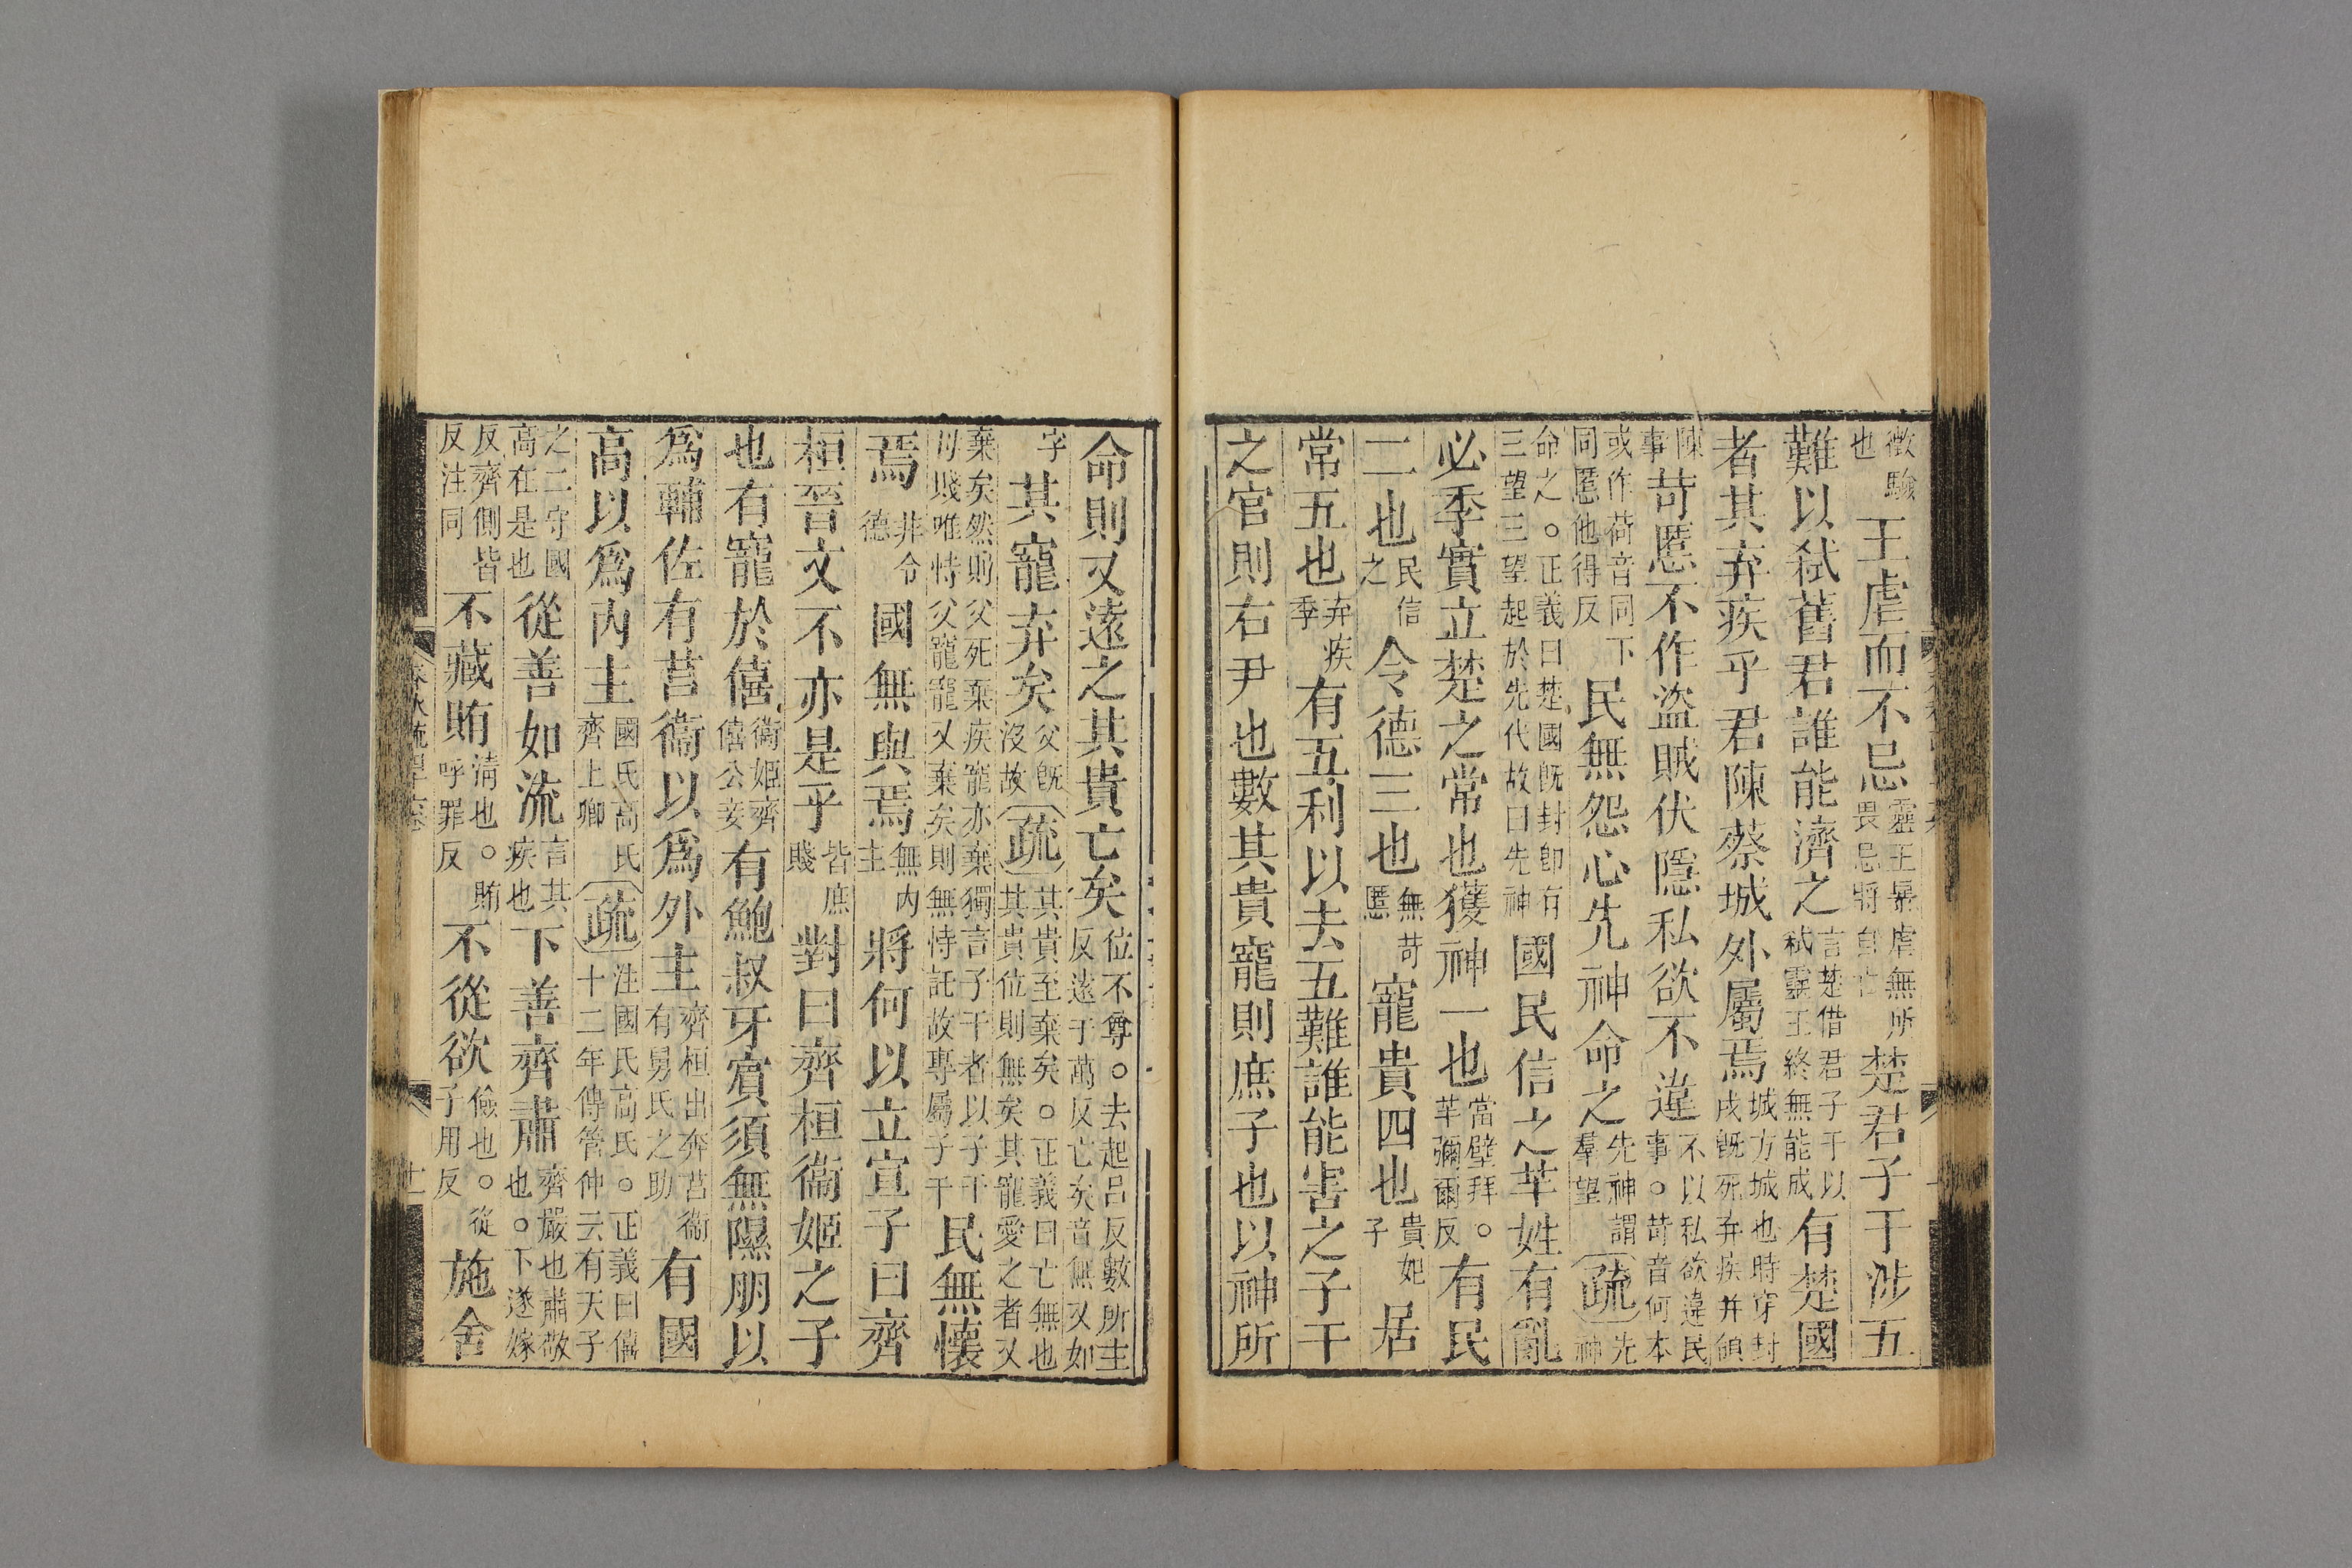 徵驗也王虐而不忌靈王暴虐無所畏忌將自亡楚君子干涉五
難以弒舊君誰能濟之言楚借君子干以弒靈王終無能成有楚國
者其弃疾乎君陳蔡城外屬焉城方城也時穿封戌旣死弃疾并領
陳事苛慝不作盜賊伏隱私欲不違不以私欲違民事○苛音何本
或作荷音同下同慝他得反民無怨心先神命之先神謂羣望疏先神
命之○正義曰楚國旣封卽有三望三望起於先代故曰先神國民信之芈姓有亂
必季實立楚之常也獲神一也當璧拜○芈彌爾反有民
二也民信之令德三也無苛慝寵貴四也貴妃子居
常五也弃疾季有五利以去五難誰能害之子干
之官則右尹也數其貴寵則庶子也以神所
命則又遠之其貴亡矣位不尊○去起呂反數所主反遠于萬反亡矣音無又如
字其寵弃矣父旣沒故疏其貴至棄矣○正義曰亡無也其貴位則無矣其寵愛之者又
棄矣然則父死棄疾寵亦棄獨言子干者以子干母賤唯恃父寵寵又棄矣則無恃託故專屬子干民無懷
焉非令德國無與焉無內主將何以立宣子曰齊
桓晉文不亦是乎皆庶賤對曰齊桓衞姬之子
也有寵於僖衞姬齊僖公妾有鮑叔牙賓須無隰朋以
爲輔佐有莒衞以爲外主齊桓出奔莒衞有舅氏之助有國
高以爲內主國氏高氏齊上卿疏注國氏高氏○正義曰僖十二年傳管仲云有天子
之二守國高在是也從善如流言其疾也下善齊肅齊嚴也肅敬也○下遂嫁
反齊側皆反注同不藏賄淸也○賄呼罪反不從欲儉也○從子用反施舍